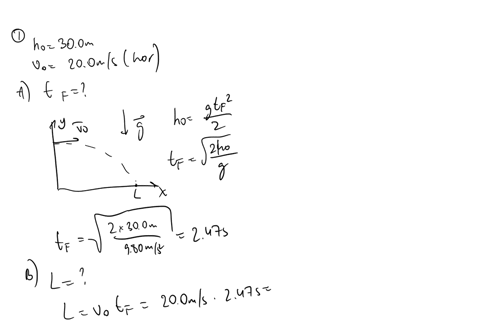 ①
h₀ = 30.0m
v₀ = 20.0m/s (hor)
A) t_F = ?
y v̄₀ ↓ g⃗ h₀ = gt_F²/2
t_F = √(2h₀/g)
L x
t_F = √(2 × 30.0m / 9.80m/s²) = 2.47s
B) L = ?
L = v₀ t_F = 20.0m/s · 2.47s =